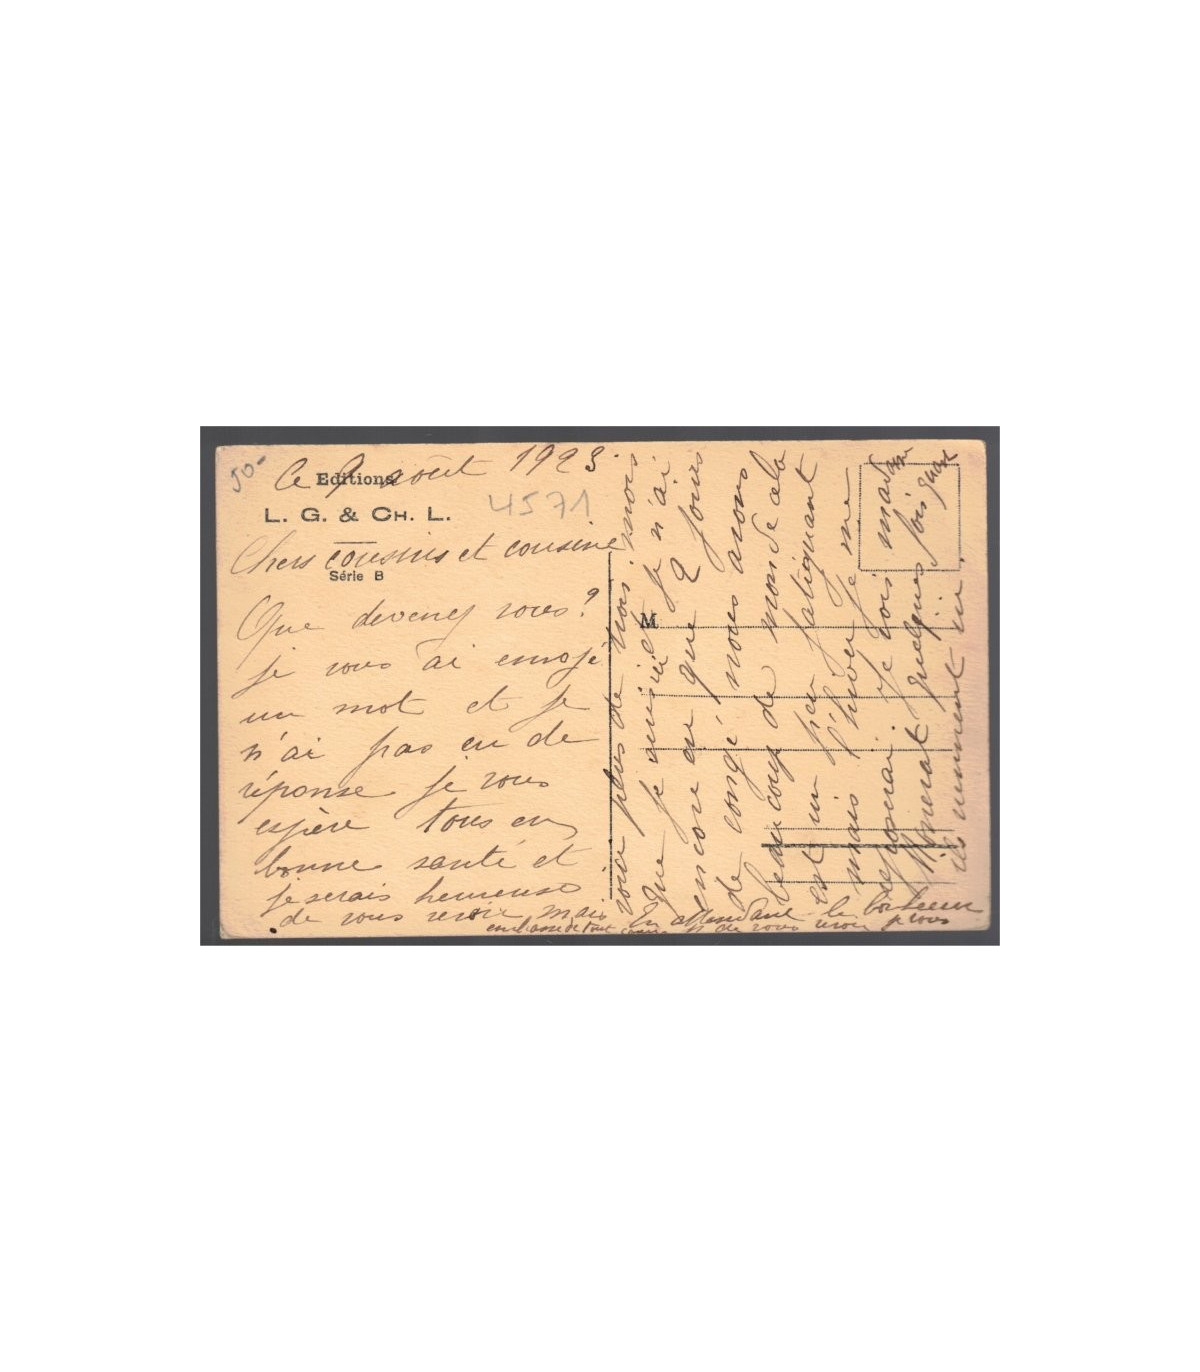 50-
Le 9 août 1923.
Editions
L. G. & CH. L.
4571
Série B
Chers cousins et cousine
Que devenez vous ?
je vous ai envoyé
un mot et je
n'ai pas eu de
réponse je vous
espère tous en
bonne santé et
je serais heureuse
de vous revoir mais
M
voici plus de trois mois
que je suis ici et je n'ai
encore eu que 2 jours
de congé nous avons
beaucoup de monde cela
est un peu fatiguant
mais l'hiver je me
reposerai. Je vois madame
quelques fois quand
ils viennent ici.
En attendant le bonheur
de vous revoir je vous
embrasse de tout cœur